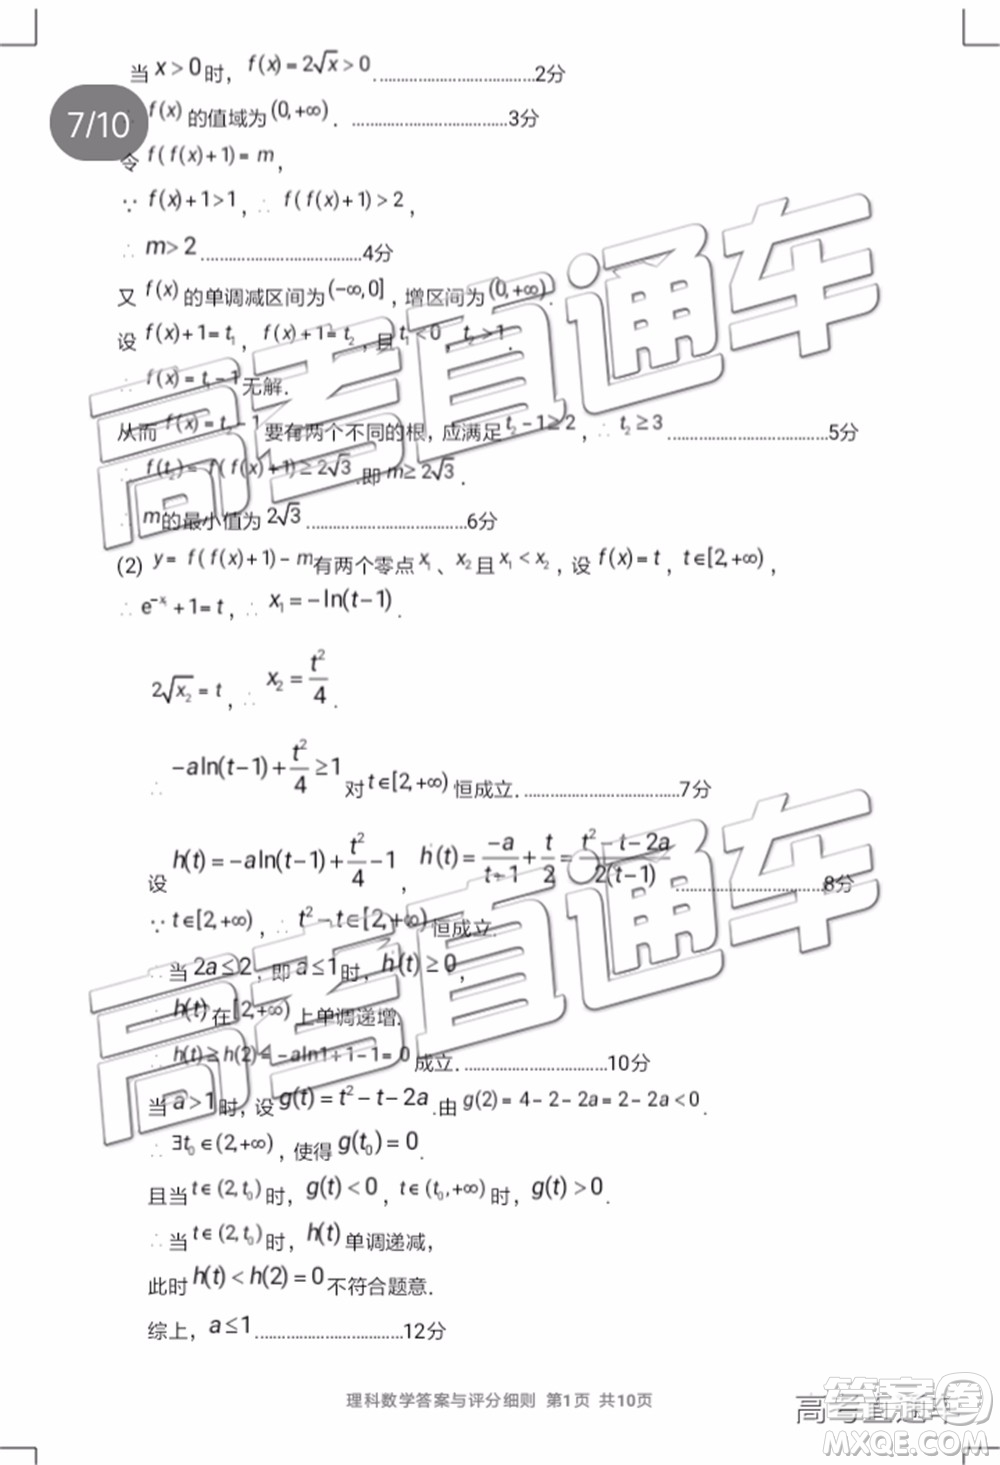 当 x>0 时， f(x)=2√x>0. ...................................2分
7/10
f(x) 的值域为 (0,+∞) . ...................................3分
令 f(f(x)+1)=m，
∵ f(x)+1>1，∴ f(f(x)+1)>2，
∴ m>2 ...................................4分
又 f(x) 的单调减区间为 (-∞,0]，增区间为 (0,+∞).
设 f(x)+1=t₁， f(x)+1=t₂，且 t₁<0， t₂>1.
∴ f(x)=t₁-1 无解.
从而 f(x)=t₂-1 要有两个不同的根，应满足 t₂-1≥2，∴ t₂≥3 ...................................5分
∴ f(t₂)=f(f(x)+1)≥2√3 .即 m≥2√3 .
∴ m的最小值为 2√3 ...................................6分
(2) y=f(f(x)+1)-m有两个零点 x₁、x₂ 且 x₁<x₂，设 f(x)=t，t∈[2,+∞)，
∴ e^(-x₁)+1=t，∴ x₁=-ln(t-1) .
2√x₂=t，∴ x₂=t²/4 .
∴ -aln(t-1)+t²/4≥1 对 t∈[2,+∞) 恒成立. ...................................7分
设 h(t)=-aln(t-1)+t²/4-1， h'(t)=-a/(t-1)+t/2=(t²-t-2a)/(2(t-1)) ...................................8分
∵ t∈[2,+∞)，∴ t²-t∈[2,+∞) 恒成立.
∴当 2a≤2，即 a≤1 时，h'(t)≥0，
∴ h(t) 在 [2,+∞) 上单调递增.
∴ h(t)≥h(2)=-aln1+1-1=0 成立. ...................................10分
当 a>1 时，设 g(t)=t²-t-2a .由 g(2)=4-2-2a=2-2a<0 .
∴ ∃t₀∈(2,+∞)，使得 g(t₀)=0 .
且当 t∈(2,t₀) 时，g(t)<0，t∈(t₀,+∞) 时，g(t)>0 .
∴当 t∈(2,t₀) 时，h(t) 单调递减，
此时 h(t)<h(2)=0 不符合题意.
综上，a≤1 ...................................12分
高考直通车
高考直通车
理科数学答案与评分细则 第1页 共10页
高考直通车
答案圈
MXQE.COM